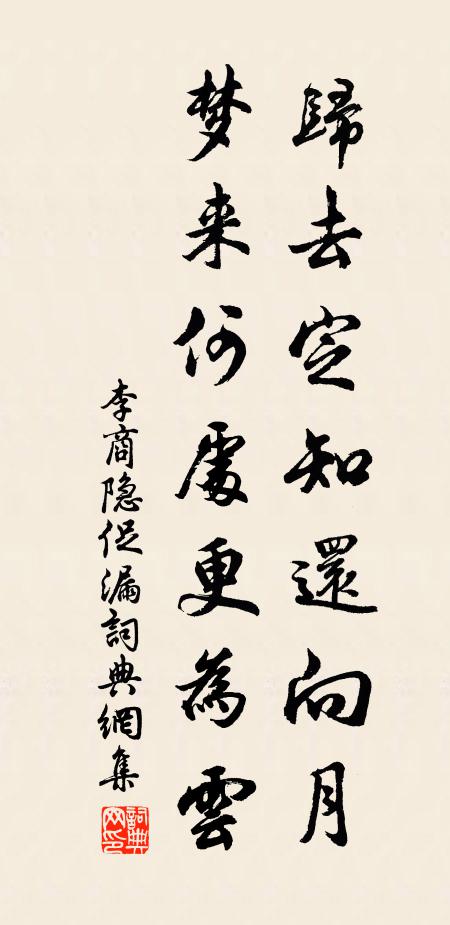 歸去定知還向月
梦来何處更為雲
李商隐促漏詞典網集
詞典
网印